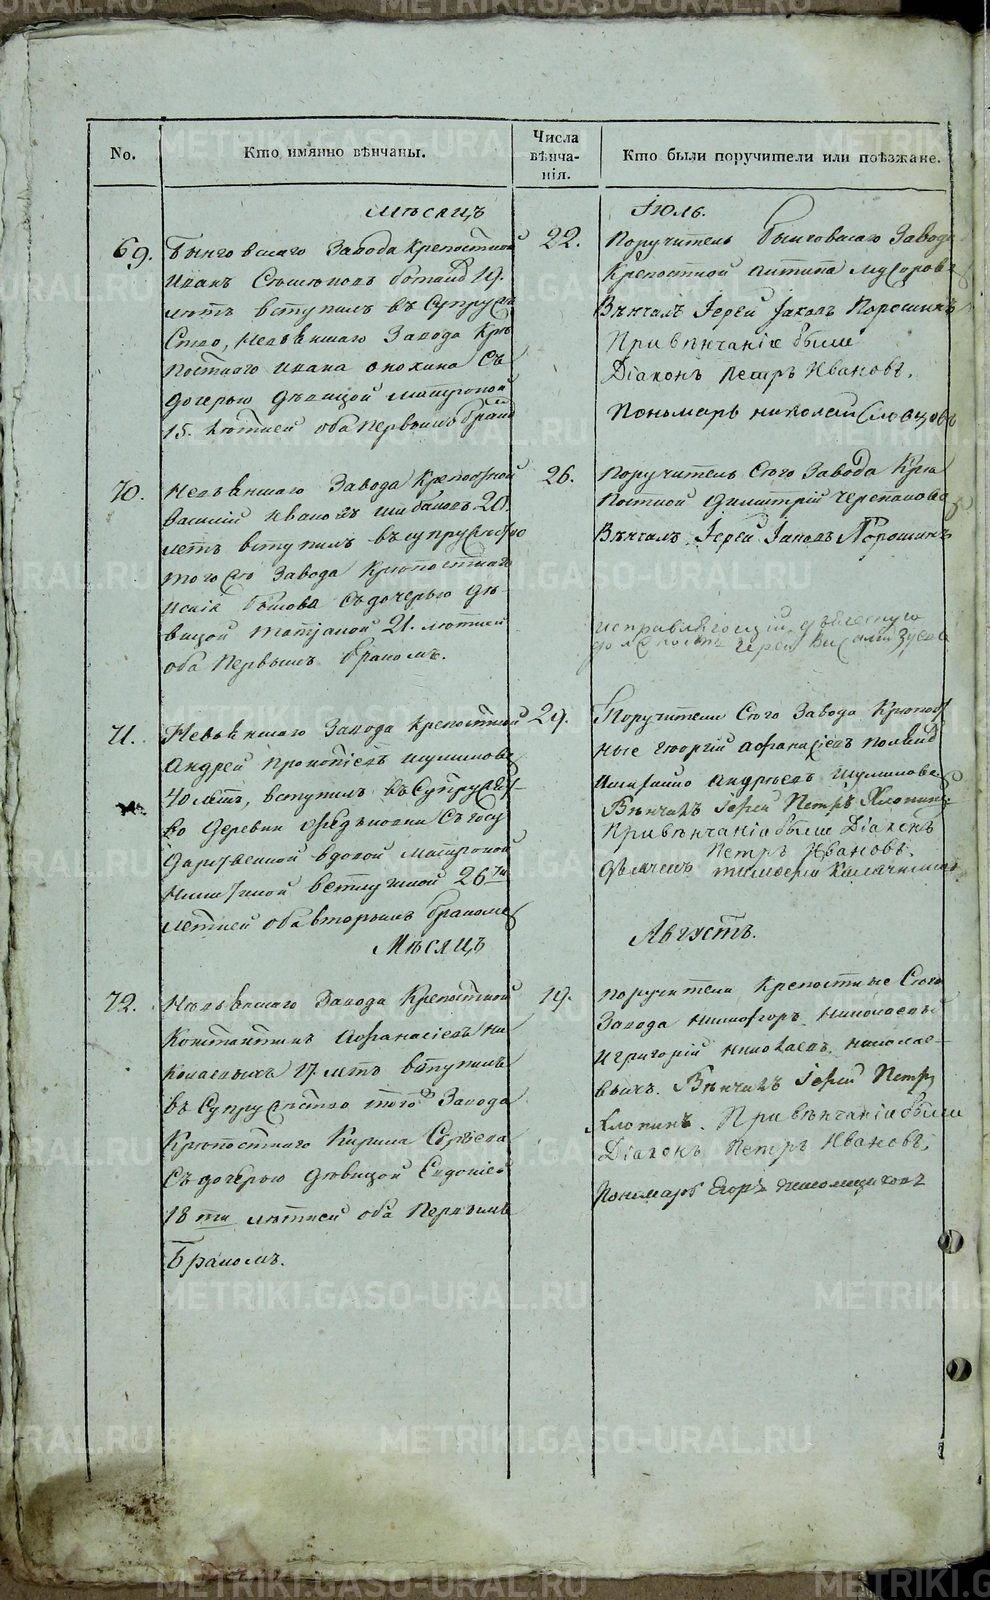 No.
Кто имянно вѣнчаны.
Числа вѣнча-
нія.
Кто были поручители или поѣзжане.
Мѣсяцъ
Іюль.
69.
Бынговскаго Завода крепостной
Иванъ 19.
лѣтъ вступилъ въ супруже
ство, Невьянскаго Завода кре
постнаго Ивана съ
дочерью дѣвицой Матроной
15. лѣтней оба первымъ бракомъ
22.
Поручитель Бынговскаго Завода
Крепостной Антипа
Вѣнчалъ Іерей Іаковъ Порошинъ
При вѣнчаніе были
Діаконъ Петръ Ивановъ,
Пономарь Николай Словцовъ
70.
Невьянскаго Завода Крепостной
Василій Ивановъ 20.
летъ вступилъ въ супружество
того Завода Крепостнаго
съ дочерью дѣ-
вицой Татіаной 21. лѣтней
оба Первымъ бракомъ.
26.
Поручитель Сего Завода Кре
постной Димитрій Черепановъ
Вѣнчалъ Іерей Іаковъ Порошинъ
исправляющій
должность Іерей
71.
Невьянскаго Завода Крепостной
Андрей Прокопіевъ Шумиловъ
40 лѣтъ, вступилъ въ супружест-
во деревни съ госу
дарственной вдовой Матроной
Никитиной 26ти
летней оба вторымъ бракомъ
29.
Поручители Сего Завода Крепост
ные Георгій Афанасіевъ
Андреевъ Шумиловъ
Вѣнчалъ Іерей Петръ Хлопинъ
При вѣнчаніе были Діаконъ
Петръ Ивановъ,
Тимофей
Мѣсяцъ
Августъ.
72.
Невьянскаго Завода Крепостной
Константинъ Афанасіевъ Ни
колаевыхъ 17. лѣтъ вступилъ
въ Супружество того Завода
Крепостнаго Кирила Сергѣева
Съ дочерью дѣвицой Евдокіей
18 ти лѣтней оба Первымъ
Бракомъ.
19.
Поручители Крепостные Сего
Завода Никифоръ Николаевъ
и Григорій Николаевъ Николае-
выхъ. Вѣнчалъ Іерей Петръ
Хлопинъ. При вѣнчаніи были
Діаконъ Петръ Ивановъ,
Пономарь Егоръ
METRIKI.GASO-URAL.RU